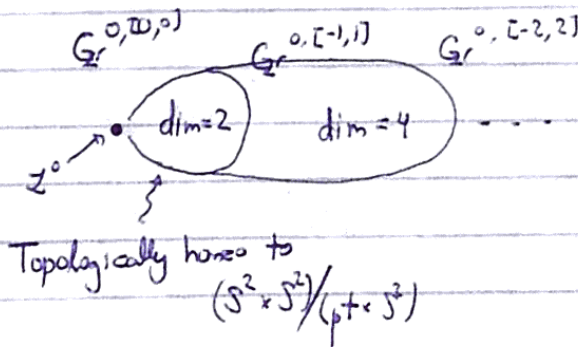 Gr^{0,[0,0]} Gr^{0,[-1,1]} Gr^{0,[-2,2]}
dim=2 dim=4 ...
z^0
Topologically homeo to
(S^2 × S^2)/(pt × S^2)